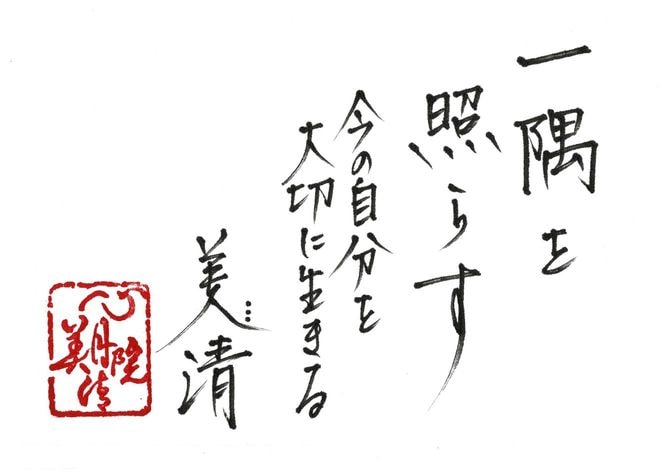 一隅を
照らす
今の自分を
大切に生きる
美清